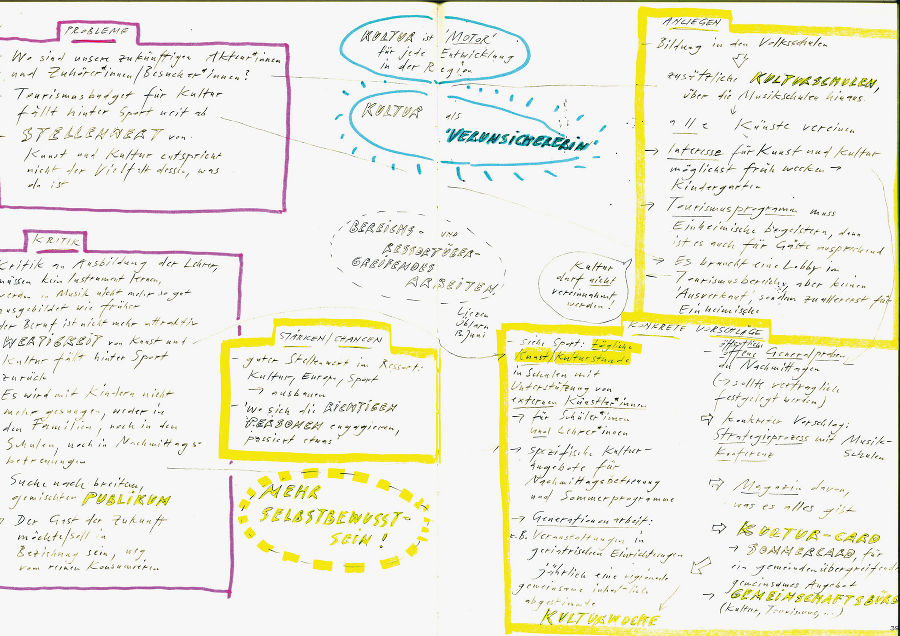 PROBLEME
- Wo sind unsere zukünftigen Akteur*innen
und Zuhörer*innen/Besucher*innen?
- Tourismusbudget für Kultur
fällt hinter Sport weit ab
- STELLENWERT von
Kunst und Kultur entspricht
nicht der Vielfalt dessen, was
da ist
KRITIK
Kritik an Ausbildung der Lehrer,
müssen kein Instrument lernen,
werden in Musik nicht mehr so gut
ausgebildet wie früher
der Beruf ist nicht mehr attraktiv
WERTIGKEIT von Kunst und
Kultur fällt hinter Sport
zurück
Es wird mit Kindern nicht
mehr gesungen, weder in
den Familien, noch in den
Schulen, noch in Nachmittags-
betreuungen
Suche nach breitem,
gemischten PUBLIKUM
→ Der Gast der Zukunft
möchte/soll in
Beziehung sein, weg
vom reinen Konsumieren
KULTUR ist 'MOTOR'
für jede Entwicklung
in der Region
KULTUR als
'VERUNSICHERERIN'
BEREICHS- UND
RESSORTÜBER-
GREIFENDES
ARBEITEN
Kultur
darf nicht
vereinnahmt
werden!
Liezen
Öblarn
13. Juni
STÄRKEN/CHANCEN
- guter Stellenwert im Ressort:
Kultur, Europa, Sport
→ ausbauen
- Wo sich die RICHTIGEN
PERSONEN engagieren,
passiert etwas
MEHR
SELBSTBEWUSST-
SEIN!
ANLIEGEN
- Bildung in den Volksschulen
zusätzliche KULTURSCHULEN,
über die Musikschulen hinaus.
alle Künste vereinen
→ Interesse für Kunst und Kultur
möglichst früh wecken →
Kindergarten
→ Tourismusprogramm muss
Einheimische begeistern, dann
ist es auch für Gäste ansprechend
→ Es braucht eine Lobby im
Tourismusbereich, aber keinen
Ausverkauf, sondern zuallererst für
Einheimische
KONKRETE VORSCHLÄGE
- Siehe Sport: tägliche
Kunst/Kulturstunde
in Schulen mit
Unterstützung von
externen Künstler*innen
→ für Schüler*innen
und Lehrer*innen
→ spezifische Kultur-
Angebote für
Nachmittagsbetreuung
und Sommerprogramme
→ Generationenarbeit:
z.B. Veranstaltungen in
geriatrischen Einrichtungen
jährlich eine regionale
gemeinsame inhaltlich
abgestimmte
KULTURWOCHE
öffentliche
- offene Generalproben
an Nachmittagen
(→ sollte vertraglich
festgelegt werden)
⇨ Konkreter Vorschlag:
Strategieprozess mit Musik-
Konferenz schulen
⇨ Magazin davon,
was es alles gibt
⇨ KULTUR-CARD
→ SOMMERCARD, für
ein gemeindenübergreifendes
gemeinsames Angebot
→ GEMEINSCHAFTSBÜRO
(Kultur, Tourismus, ...)